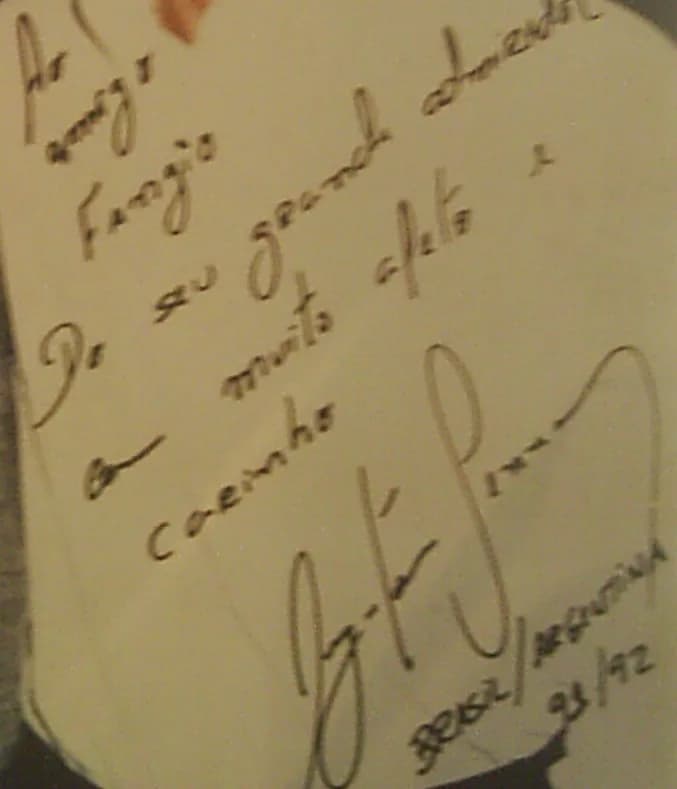 Ao
amigo
Fangio
Do seu grande admirador
com muito afeto e
carinho
Ayrton Senna
BRASIL/ARGENTINA
93/92